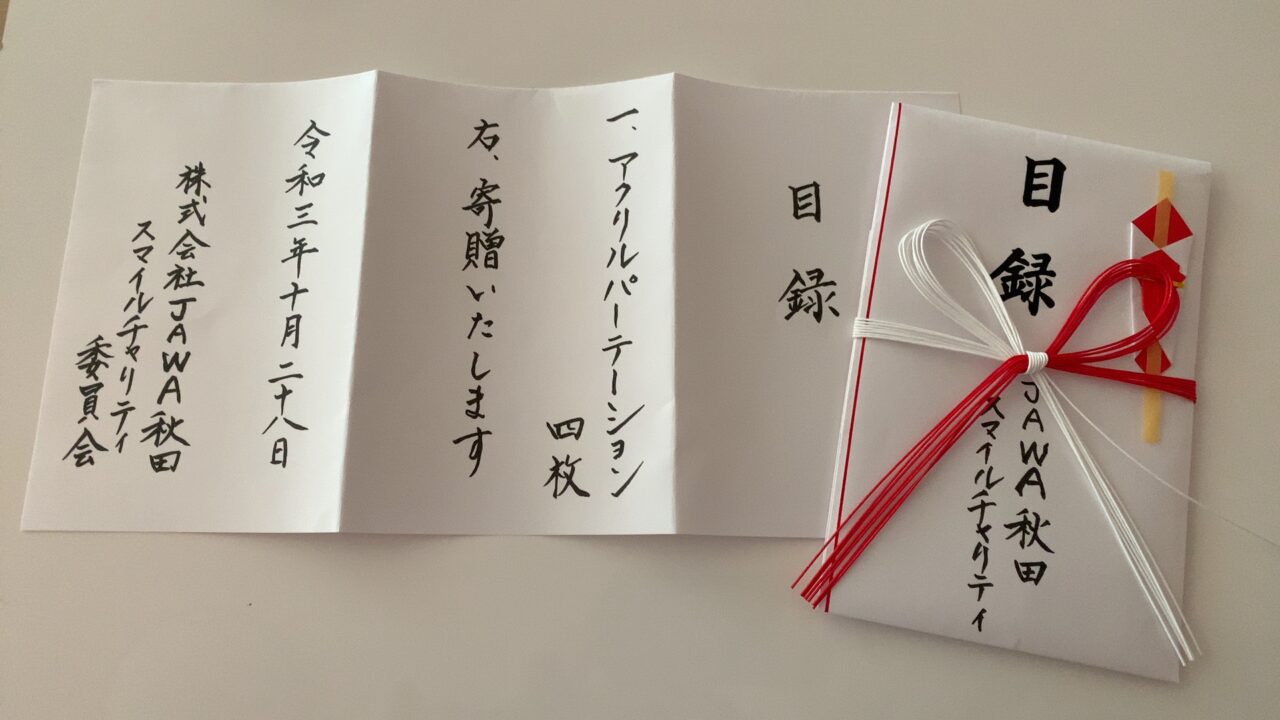 目録
JAWA秋田
スマイルチャリティ
目録
一、アクリルパーテーション
四枚
右、寄贈いたします
令和三年十月二十八日
株式会社JAWA秋田
スマイルチャリティ
委員会